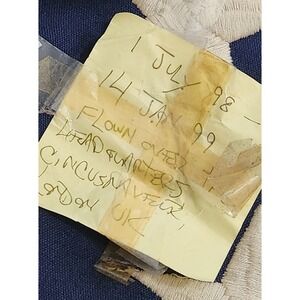 1 JULY 98 -
14 JAN 99
FLOWN OVER
HEADQUARTERS
CINCUSNAVEUR,
LONDON UK